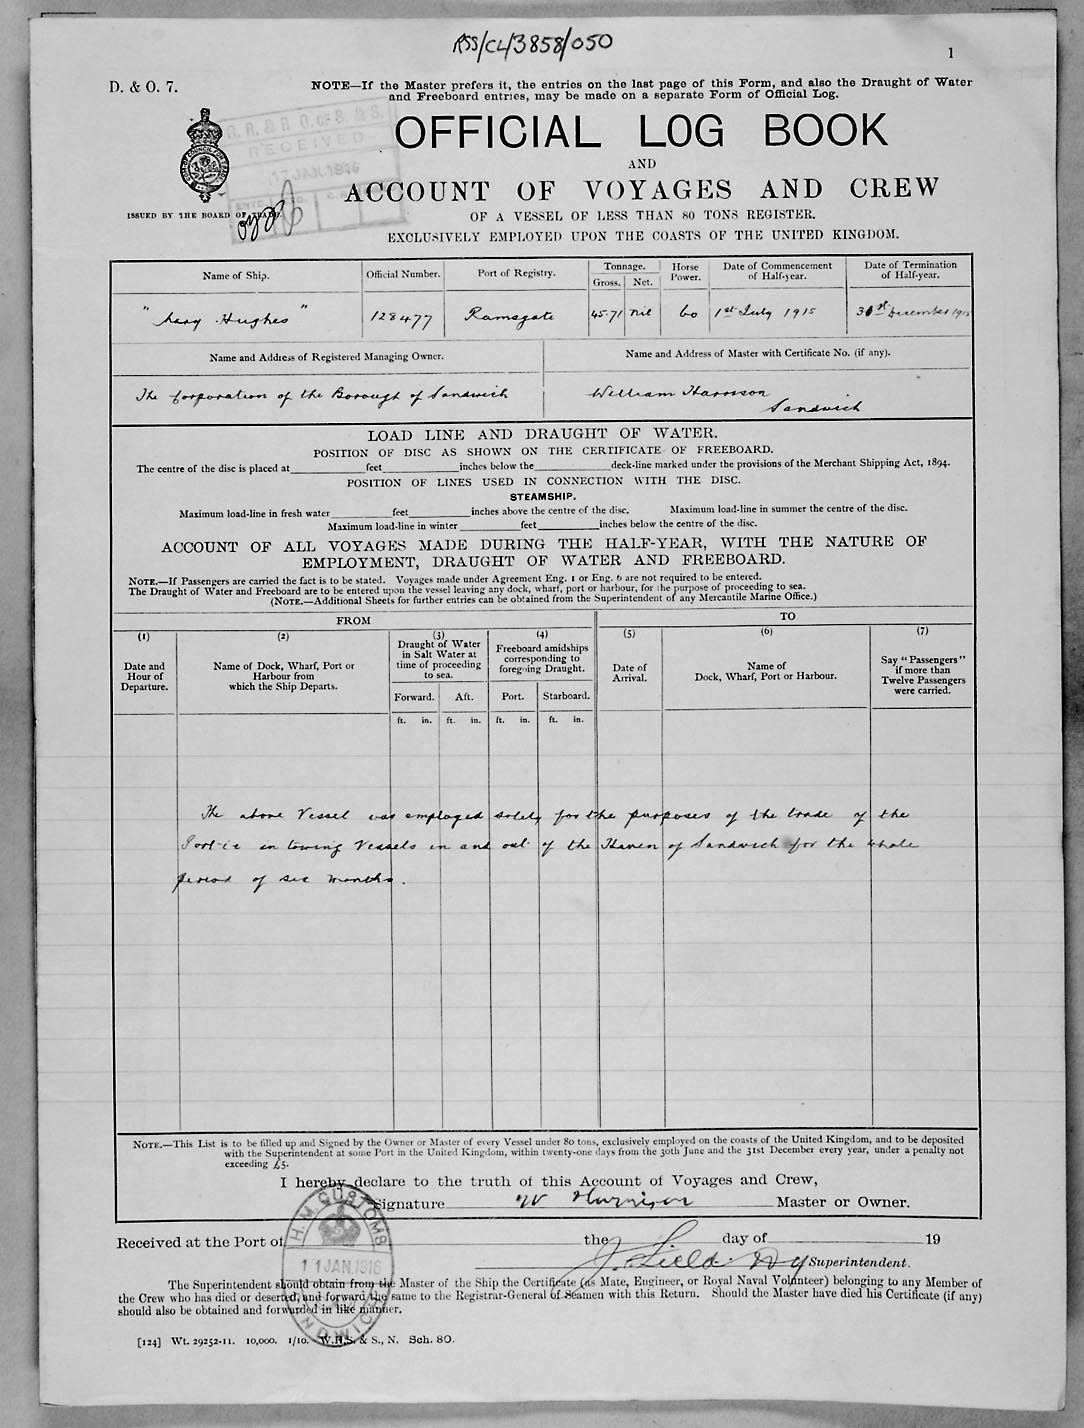 RSS/CL/3858/050
1
D. & O. 7.
NOTE—If the Master prefers it, the entries on the last page of this Form, and also the Draught of Water
and Freeboard entries, may be made on a separate Form of Official Log.
RECEIVED
17 JAN. 1916
OFFICIAL LOG BOOK
AND
ACCOUNT OF VOYAGES AND CREW
ISSUED BY THE BOARD OF TRADE.
OF A VESSEL OF LESS THAN 80 TONS REGISTER,
EXCLUSIVELY EMPLOYED UPON THE COASTS OF THE UNITED KINGDOM.
Name of Ship. Official Number. Port of Registry. Tonnage. Gross. Net. Horse Power. Date of Commencement of Half-year. Date of Termination of Half-year.
"Mary Hughes" 128477 Ramsgate 45.71 Nil 60 1st July 1915 31st December 1915
Name and Address of Registered Managing Owner. Name and Address of Master with Certificate No. (if any).
The Corporation of the Borough of Sandwich William Harrison
Sandwich
LOAD LINE AND DRAUGHT OF WATER.
POSITION OF DISC AS SHOWN ON THE CERTIFICATE OF FREEBOARD.
The centre of the disc is placed at feet inches below the deck-line marked under the provisions of the Merchant Shipping Act, 1894.
POSITION OF LINES USED IN CONNECTION WITH THE DISC.
STEAMSHIP.
Maximum load-line in fresh water feet inches above the centre of the disc. Maximum load-line in summer the centre of the disc.
Maximum load-line in winter feet inches below the centre of the disc.
ACCOUNT OF ALL VOYAGES MADE DURING THE HALF-YEAR, WITH THE NATURE OF
EMPLOYMENT, DRAUGHT OF WATER AND FREEBOARD.
NOTE.—If Passengers are carried the fact is to be stated. Voyages made under Agreement Eng. 1 or Eng. 6 are not required to be entered.
The Draught of Water and Freeboard are to be entered upon the vessel leaving any dock, wharf, port or harbour, for the purpose of proceeding to sea.
(NOTE.—Additional Sheets for further entries can be obtained from the Superintendent of any Mercantile Marine Office.)
FROM TO
(1) Date and Hour of Departure.
(2) Name of Dock, Wharf, Port or Harbour from which the Ship Departs.
(3) Draught of Water in Salt Water at time of proceeding to sea.
Forward. Aft.
(4) Freeboard amidships corresponding to foregoing Draught.
Port. Starboard.
(5) Date of Arrival.
(6) Name of Dock, Wharf, Port or Harbour.
(7) Say "Passengers" if more than Twelve Passengers were carried.
ft. in. ft. in. ft. in. ft. in.
The above Vessel was employed solely for the purposes of the trade of the
Port i.e. in towing Vessels in and out of the Haven of Sandwich for the whole
period of six months.
NOTE.—This List is to be filled up and Signed by the Owner or Master of every Vessel under 80 tons, exclusively employed on the coasts of the United Kingdom, and to be deposited
with the Superintendent at some Port in the United Kingdom, within twenty-one days from the 30th June and the 31st December every year, under a penalty not
exceeding £5.
I hereby declare to the truth of this Account of Voyages and Crew,
Signature W Harrison Master or Owner.
Received at the Port of the day of 19
J. Field Dy Superintendent.
H.M. CUSTOMS
11 JAN. 1916
SANDWICH
The Superintendent should obtain from the Master of the Ship the Certificate (as Mate, Engineer, or Royal Naval Volunteer) belonging to any Member of
the Crew who has died or deserted, and forward the same to the Registrar-General of Seamen with this Return. Should the Master have died his Certificate (if any)
should also be obtained and forwarded in like manner.
[124] Wt. 29252-11. 10,000. 1/10. W.H.S. & S., N. Sch. 80.